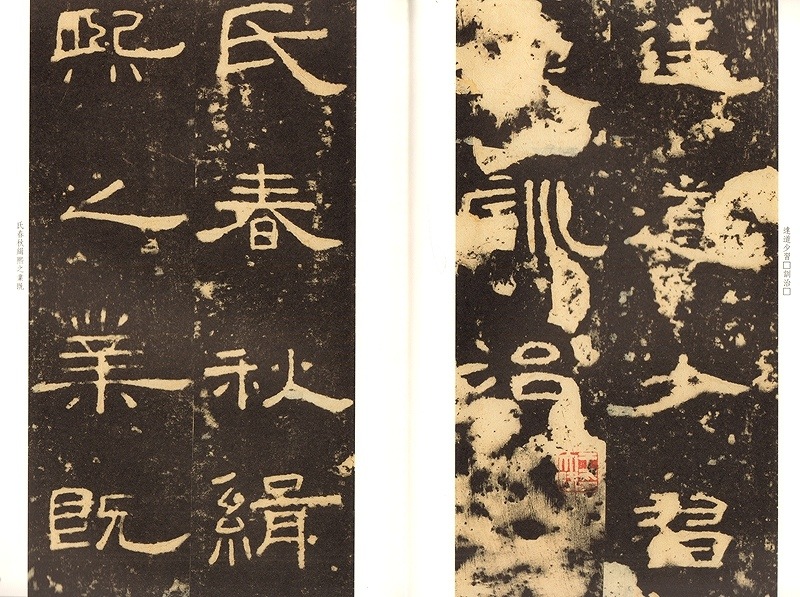 達道少習□訓治□
達道少習
訓治
氏春秋緝
熙之業既
氏春秋緝熙之業既